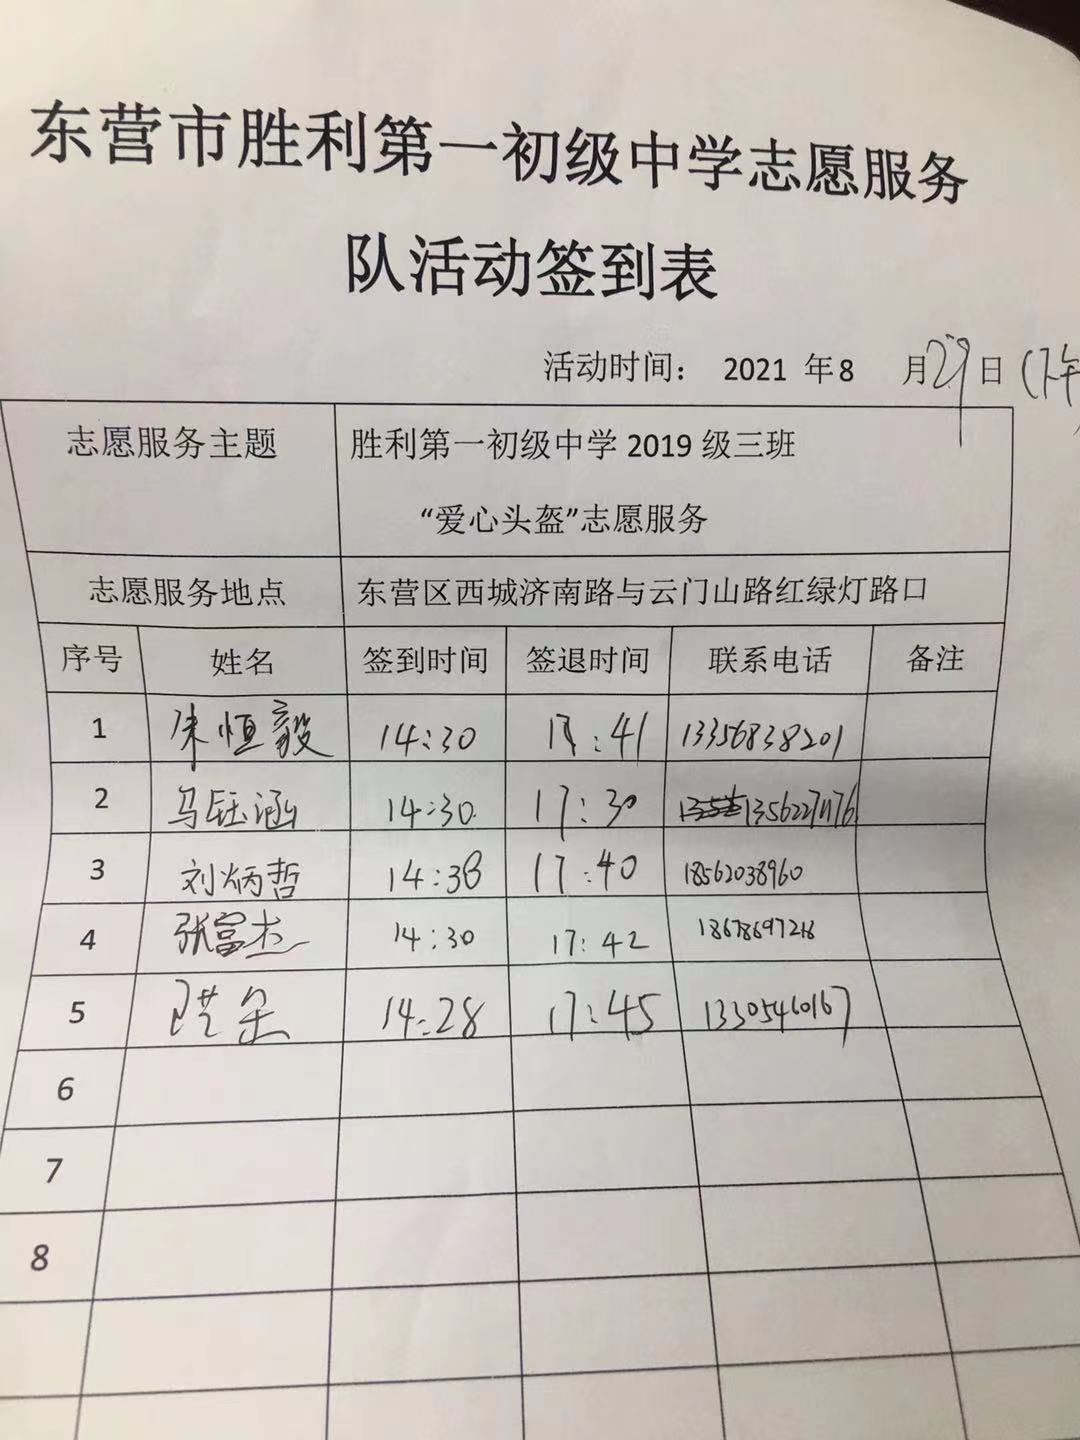 东营市胜利第一初级中学志愿服务
队活动签到表
活动时间： 2021 年8 月29日（下午
志愿服务主题 胜利第一初级中学 2019 级三班
“爱心头盔”志愿服务
志愿服务地点 东营区西城济南路与云门山路红绿灯路口
序号 姓名 签到时间 签退时间 联系电话 备注
1 朱恒毅 14:30 :41 13356838201
2 马钰涵 14:30 17:30
3 刘炳哲 14:38 17:40 18562038960
4 张富杰 14:30 17:42 18678697216
5 14:28 17:45 13305460167
6
7
8